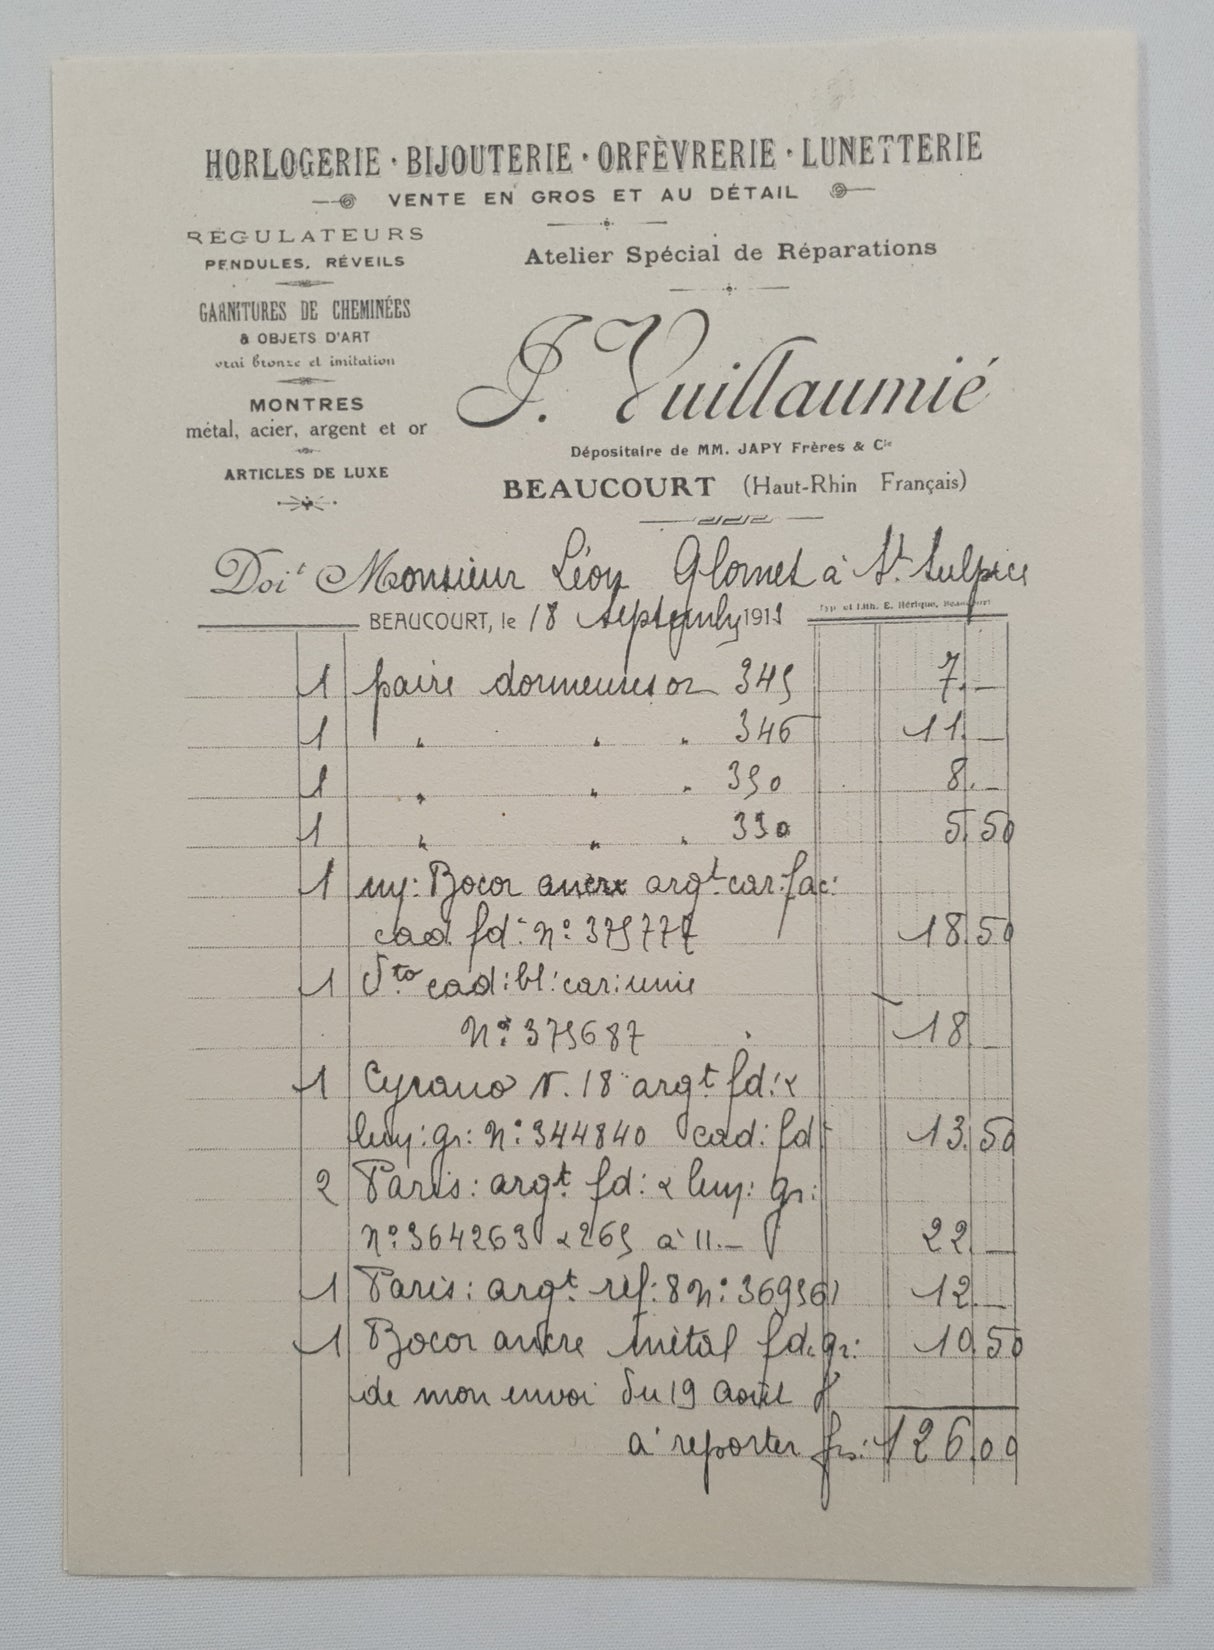 HORLOGERIE · BIJOUTERIE · ORFÈVRERIE · LUNETTERIE
VENTE EN GROS ET AU DÉTAIL
RÉGULATEURS
PENDULES, RÉVEILS
GARNITURES DE CHEMINÉES
& OBJETS D'ART
vrai bronze et imitation
MONTRES
métal, acier, argent et or
ARTICLES DE LUXE
Atelier Spécial de Réparations
J. Vuillaumié
Dépositaire de MM. JAPY Frères & Cie
BEAUCOURT (Haut-Rhin Français)
Doit Monsieur Léon Glomet à St. Sulpice
Typ et Lith. E. Hérique, Beaucourt
BEAUCOURT, le 18 Septembre 1911
1 paire dormeuses or 345 7.—
1 " " " 346 11.—
1 " " " 350 8.—
1 " " " 330 5.50
1 Bocor ancre argt. car: fac:
cad fd: No: 375777 18.50
1 dto cad: bl: car: unie
No: 375687 18.—
1 Cyrano N. 18 argt. fd: &
luy: gr: No: 344840 cad: fd: 13.50
2 Paris: argt. fd: & luy: gr:
No: 364263 & 265 à 11.— 22.—
1 Paris: argt. réf: 8 No: 369361 12.—
1 Bocor ancre métal fd. gr: 10.50
de mon envoi du 19 août
à reporter frs: 126.00